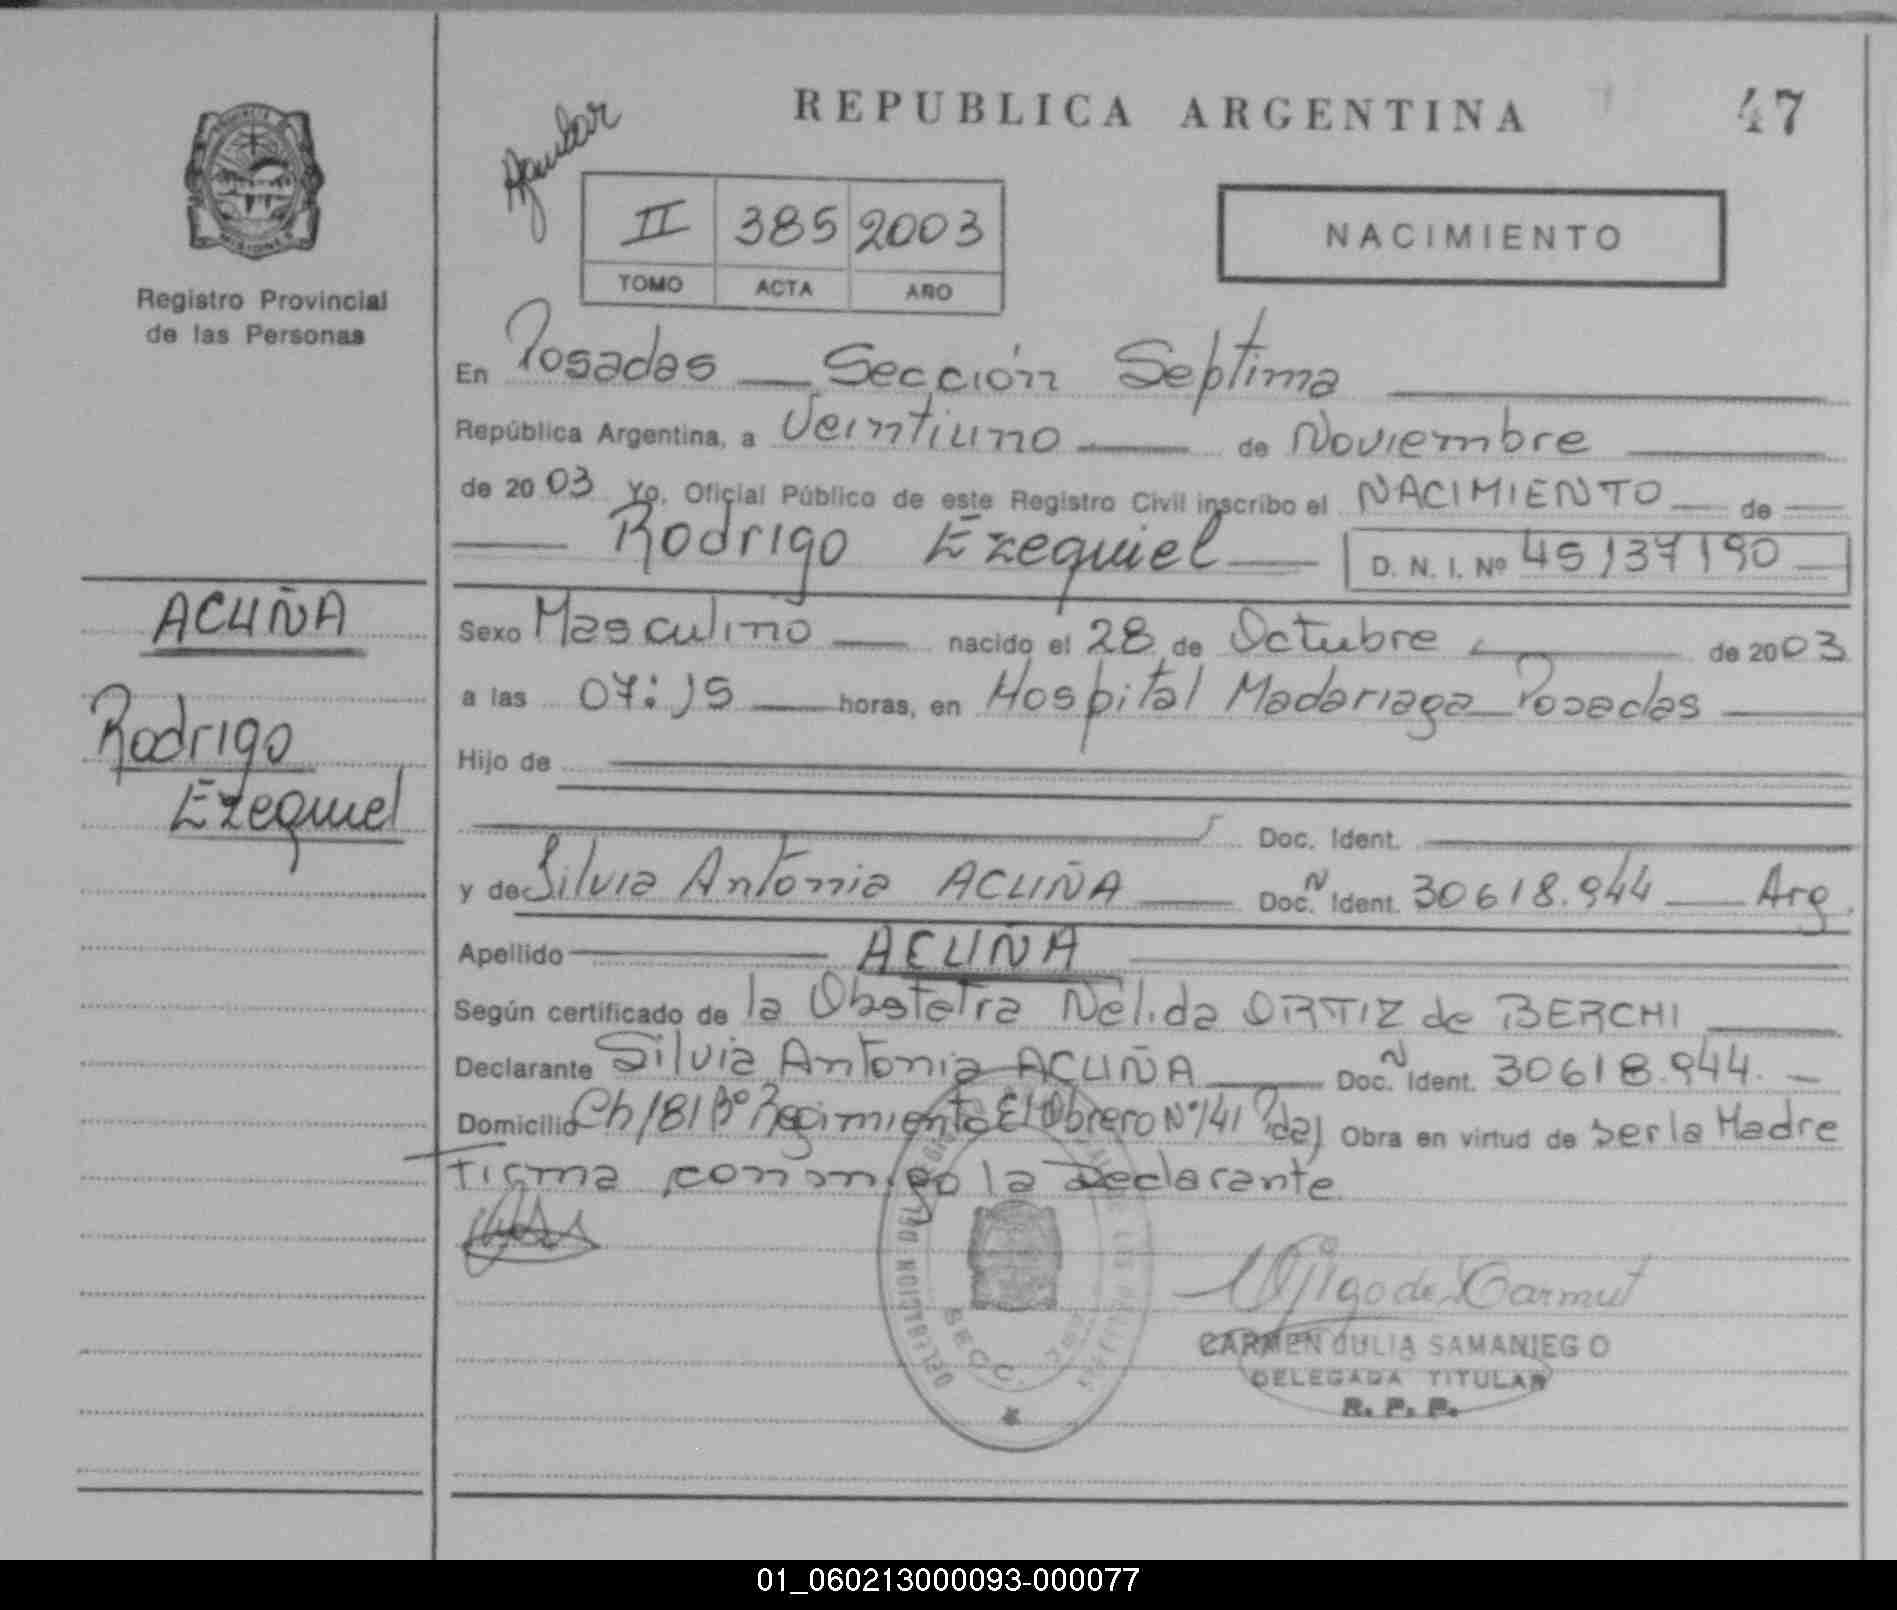 REPUBLICA ARGENTINA
47
Aguilar
II 385 2003
TOMO ACTA AÑO
NACIMIENTO
Registro Provincial
de las Personas
En Posadas Sección Septima
República Argentina, a Veintiuno de Noviembre
de 2003 Yo, Oficial Público de este Registro Civil inscribo el NACIMIENTO de
Rodrigo Ezequiel D. N. I. Nº 45137190
ACUÑA
Rodrigo
Ezequiel
Sexo Masculino nacido el 28 de Octubre de 2003
a las 07:15 horas, en Hospital Madariaga Posadas
Hijo de
Doc. Ident.
y de Silvia Antonia ACUÑA Doc. N Ident. 30618.944 Arg
Apellido ACUÑA
Según certificado de la Obstetra Nélida ORTIZ de BERCHI
Declarante Silvia Antonia ACUÑA Doc. N Ident. 30618.944.
Domicilio Ch 181 Bº Regimiento El Obrero Nº 141 Pdas Obra en virtud de ser la Madre
firma conmigo la Declarante
CARMEN JULIA SAMANIEGO
DELEGADA TITULAR
R. P. P.
DELEGACION DEL
SECC.
01_060213000093-000077